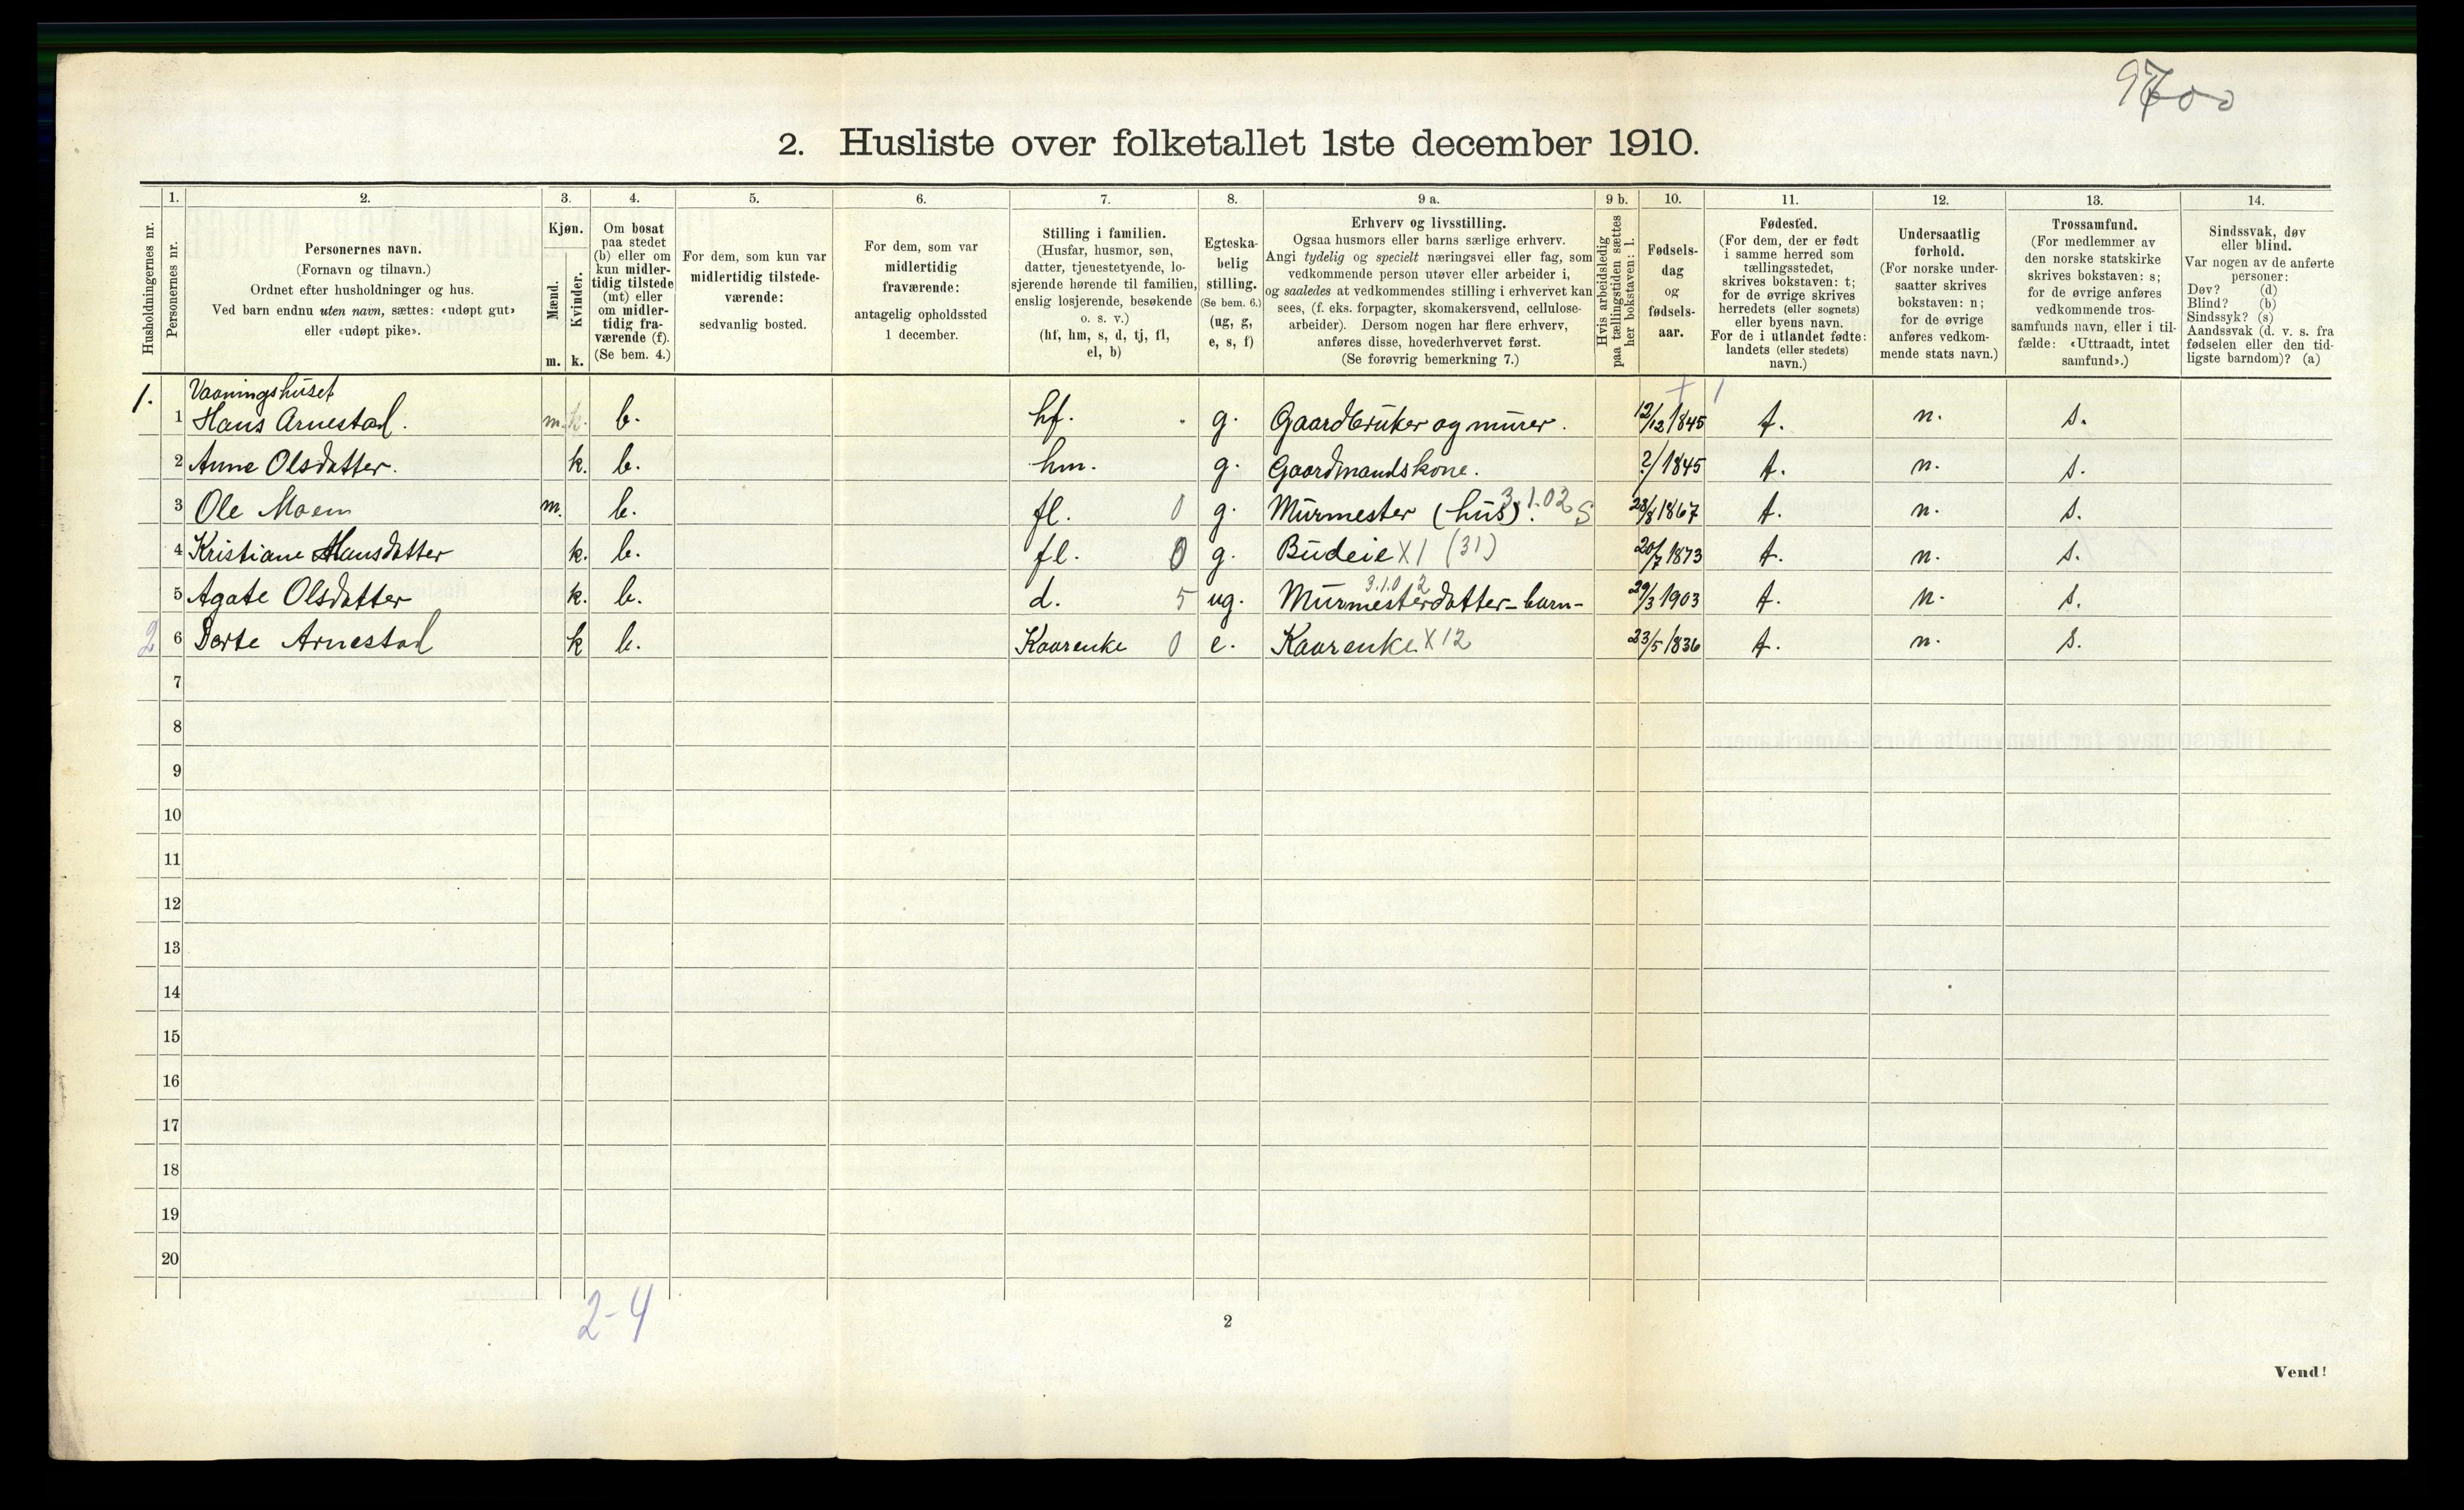 9700
2. Husliste over folketallet 1ste december 1910.
Husholdningernes nr.
1.
Personernes nr.
2.
Personernes navn.
(Fornavn og tilnavn.)
Ordnet efter husholdninger og hus.
Ved barn endnu uten navn, sættes: «udøpt gut»
eller «udøpt pike».
3.
Kjøn.
Mænd.
Kvinder.
m. k.
4.
Om bosat
paa stedet
(b) eller om
kun midler-
tidig tilstede
(mt) eller
om midler-
tidig fra-
værende (f).
(Se bem. 4.)
5.
For dem, som kun var
midlertidig tilstede-
værende:
sedvanlig bosted.
6.
For dem, som var
midlertidig
fraværende:
antagelig opholdssted
1 december.
7.
Stilling i familien.
(Husfar, husmor, søn,
datter, tjenestetyende, lo-
sjerende hørende til familien,
enslig losjerende, besøkende
o. s. v.)
(hf, hm, s, d, tj, fl,
el, b)
8.
Egteska-
belig
stilling.
(Se bem. 6.)
(ug, g,
e, s, f)
9 a.
Erhverv og livsstilling.
Ogsaa husmors eller barns særlige erhverv.
Angi tydelig og specielt næringsvei eller fag, som
vedkommende person utøver eller arbeider i,
og saaledes at vedkommendes stilling i erhvervet kan
sees, (f. eks. forpagter, skomakersvend, cellulose-
arbeider). Dersom nogen har flere erhverv,
anføres disse, hovederhvervet først.
(Se forøvrig bemerkning 7.)
9 b.
Hvis arbeidsledig
paa tællingstiden sættes
her bokstaven: l.
10.
Fødsels-
dag
og
fødsels-
aar.
11.
Fødested.
(For dem, der er født
i samme herred som
tællingsstedet,
skrives bokstaven: t;
for de øvrige skrives
herredets (eller sognets)
eller byens navn.
For de i utlandet fødte:
landets (eller stedets)
navn.)
12.
Undersaatlig
forhold.
(For norske under-
saatter skrives
bokstaven: n;
for de øvrige
anføres vedkom-
mende stats navn.)
13.
Trossamfund.
(For medlemmer av
den norske statskirke
skrives bokstaven: s;
for de øvrige anføres
vedkommende tros-
samfunds navn, eller i til-
fælde: «Uttraadt, intet
samfund».)
14.
Sindssvak, døv
eller blind.
Var nogen av de anførte
personer:
Døv? (d)
Blind? (b)
Sindssyk? (s)
Aandssvak (d. v. s. fra
fødselen eller den tid-
ligste barndom)? (a)
Vaaningshuset
1. 1 Hans Arnestad. m. k. b. hf. g. Gaardbruker og murer. 12/12 1845 t. n. s.
2 Anne Olsdatter. k. b. hm. g. Gaardmandskone. ?/1845 t. n. s.
3 Ole Moen m. b. fl. 0 g. Murmester (hus). 3.1.02 S 28/8 1867 t. n. s.
4 Kristiane Hansdatter k. b. fl. 0 g. Budeie X1 (31) 20/7 1873 t. n. s.
5 Agate Olsdatter k. b. d. 5 ug. Murmesterdatter-barn- 3.1.02 29/3 1903 t. n. s.
2 6 Berte Arnestad k b. Kaarenke 0 e. Kaarenke X12 23/5 1836 t. n. s.
7
8
9
10
11
12
13
14
15
16
17
18
19
20
2-4
2
Vend!